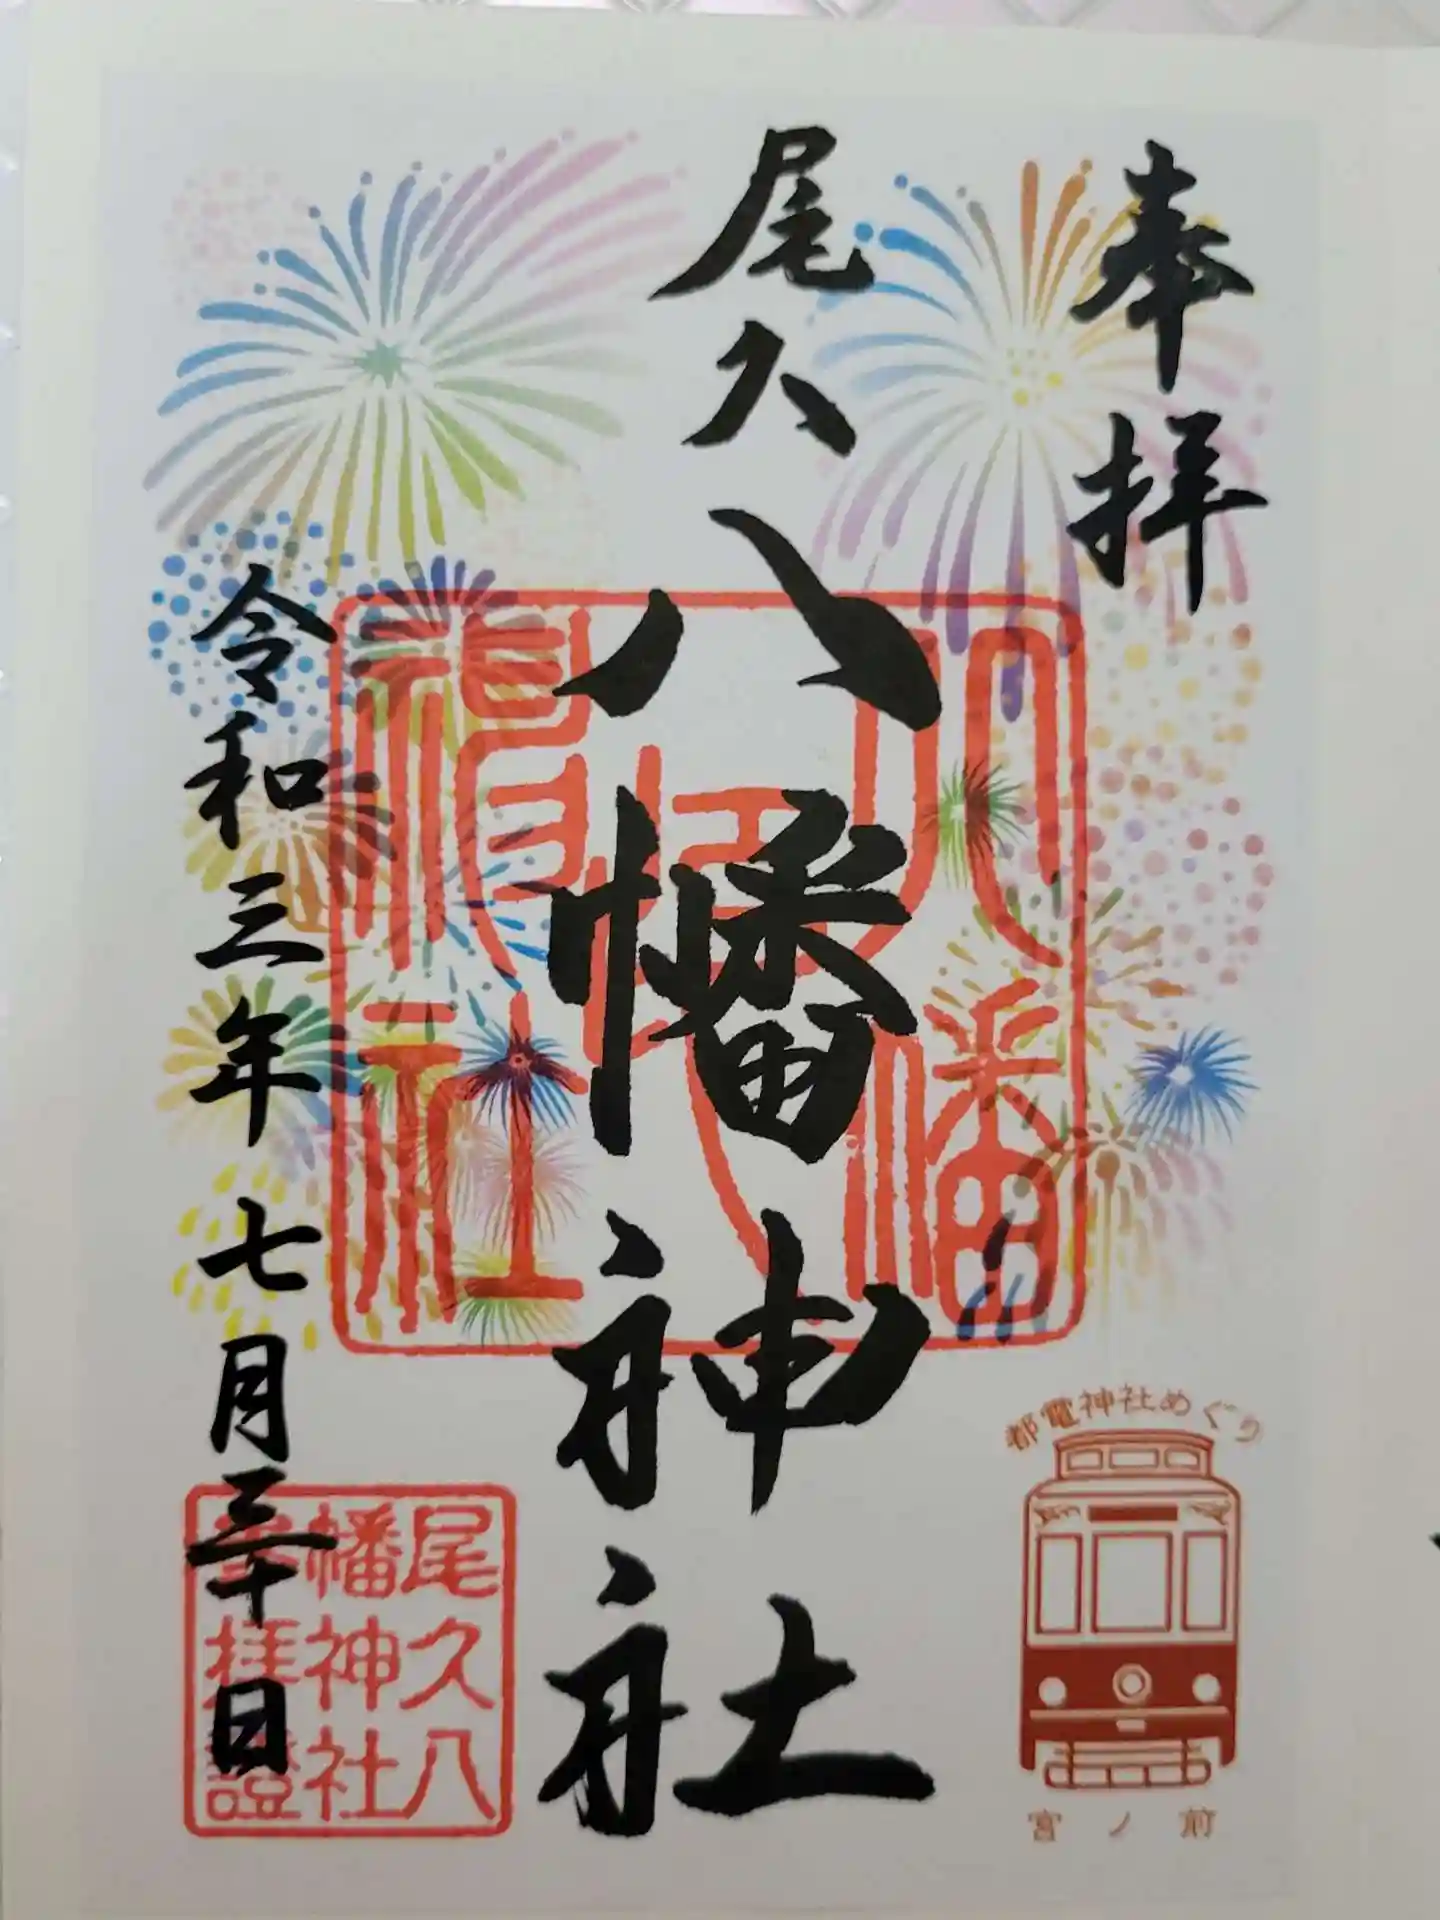 奉拝
尾久八幡神社
令和三年七月三十日
八幡
神社
尾久八
幡神社
拝證
都電神社めぐり
宮ノ前